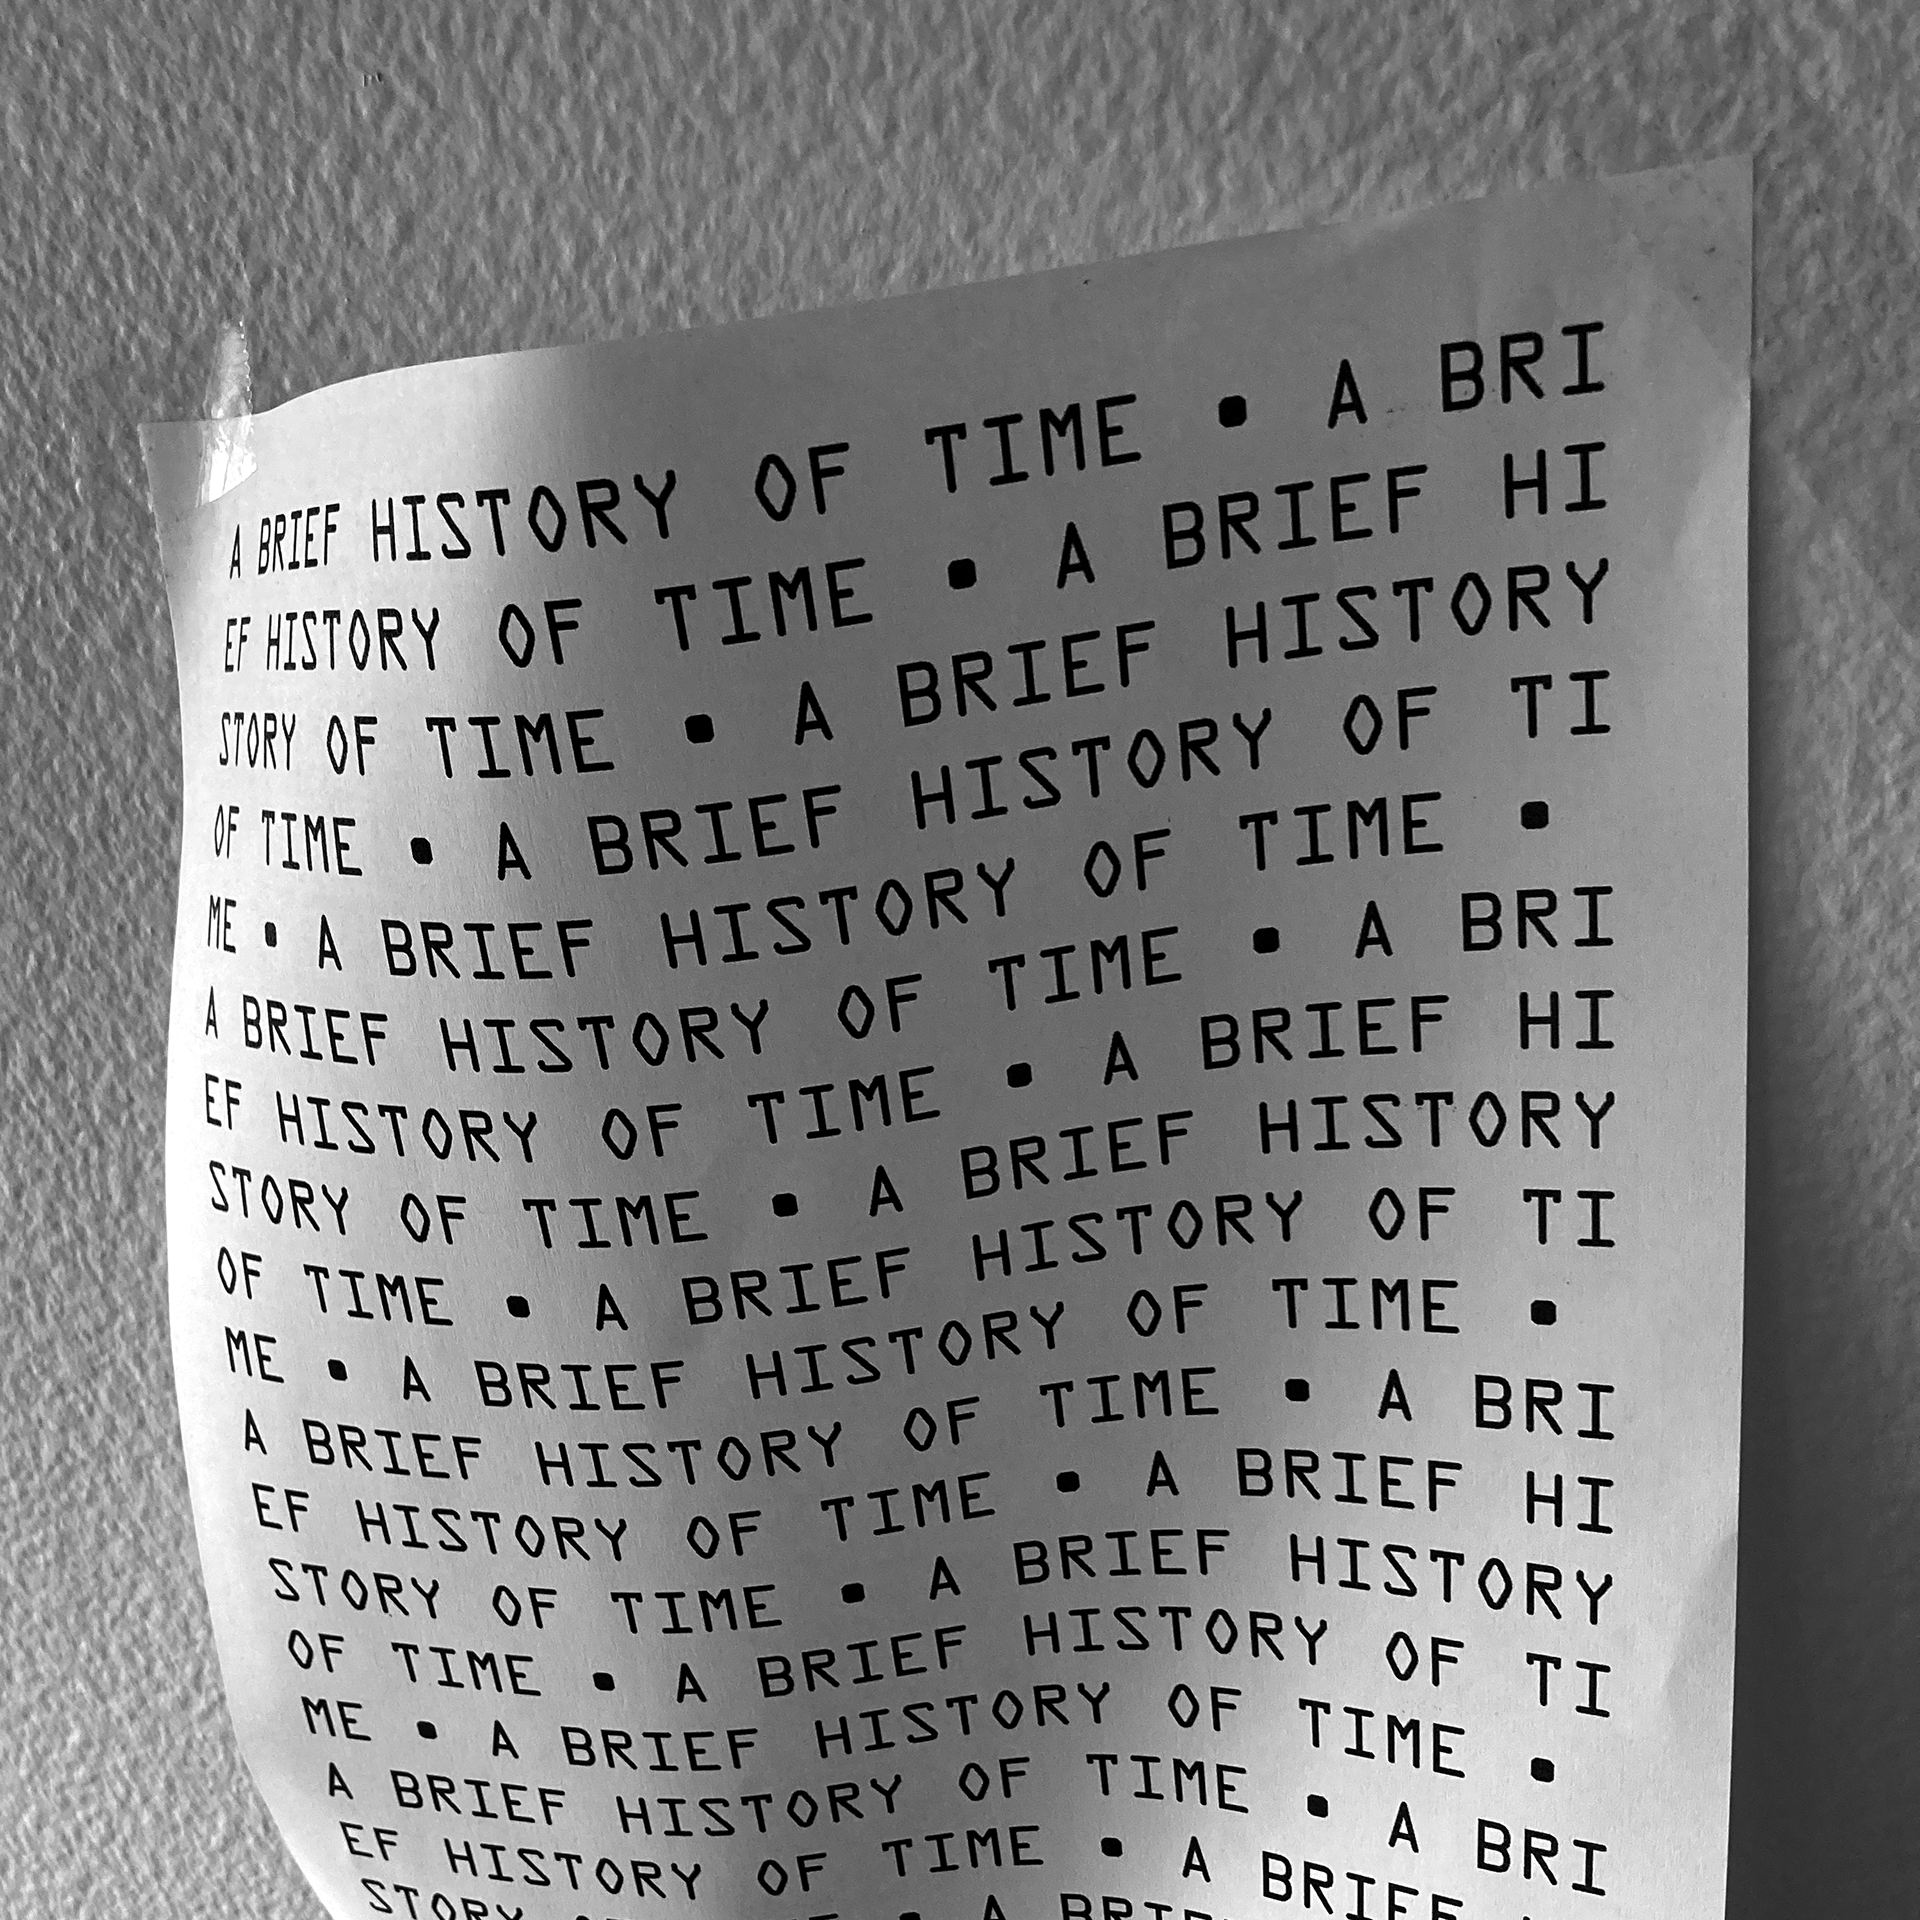 A BRIEF HISTORY OF TIME • A BRI
EF HISTORY OF TIME • A BRIEF HI
STORY OF TIME • A BRIEF HISTORY
OF TIME • A BRIEF HISTORY OF TI
ME • A BRIEF HISTORY OF TIME •
A BRIEF HISTORY OF TIME • A BRI
EF HISTORY OF TIME • A BRIEF HI
STORY OF TIME • A BRIEF HISTORY
OF TIME • A BRIEF HISTORY OF TI
ME • A BRIEF HISTORY OF TIME •
A BRIEF HISTORY OF TIME • A BRI
EF HISTORY OF TIME • A BRIEF HI
STORY OF TIME • A BRIEF HISTORY
OF TIME • A BRIEF HISTORY OF TI
ME • A BRIEF HISTORY OF TIME •
A BRIEF HISTORY OF TIME • A BRI
EF HISTORY OF TIME • A BRIEF
STORY • A BRIEF